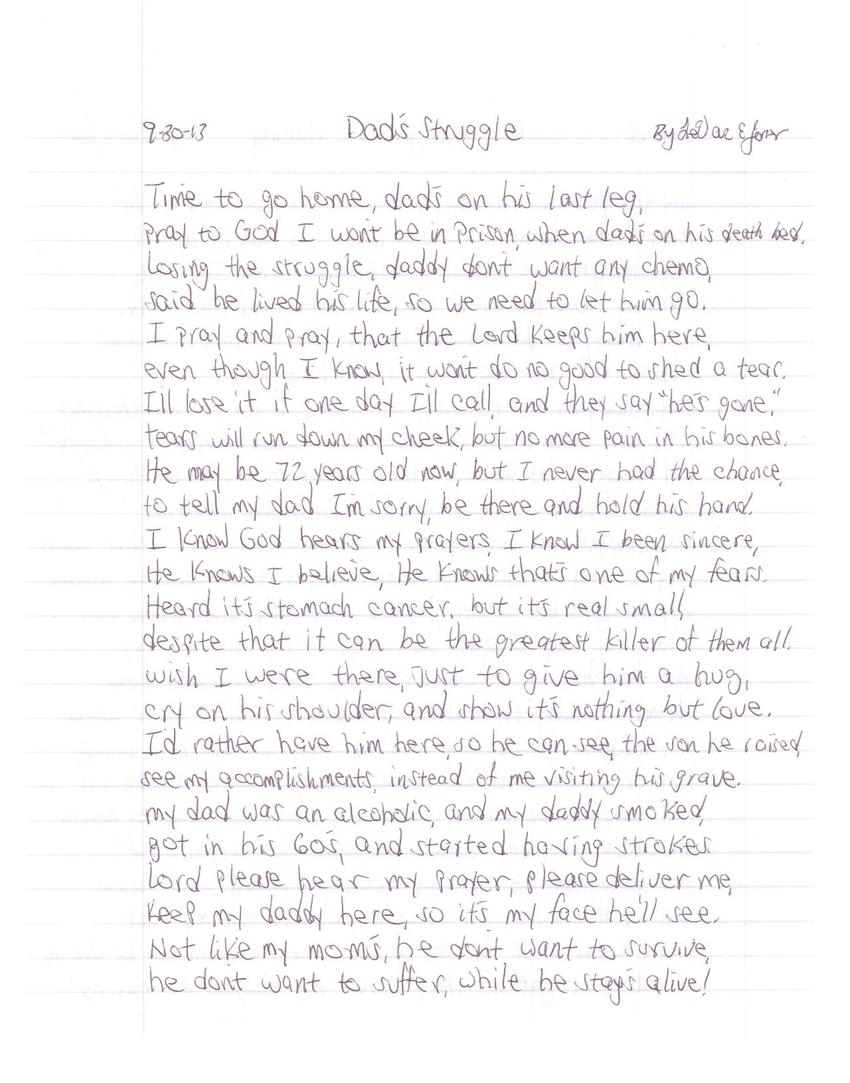 9-30-13 Dad's Struggle By
Time to go home, dad's on his last leg,
pray to God I won't be in Prison, when dad's on his death bed.
Losing the struggle, daddy don't want any chemo,
said he lived his life, so we need to let him go.
I pray and pray, that the Lord keeps him here,
even though I know, it won't do no good to shed a tear.
I'll lose it if one day I'll call, and they say "he's gone,"
tears will run down my cheek, but no more pain in his bones.
He may be 72 years old now, but I never had the chance,
to tell my dad I'm sorry, be there and hold his hand.
I know God hears my prayers, I know I been sincere,
He knows I believe, He knows that's one of my fears.
Heard it's stomach cancer, but it's real small,
despite that it can be the greatest killer of them all.
wish I were there, just to give him a hug,
cry on his shoulder, and show it's nothing but love.
I'd rather have him here, so he can see, the son he raised
see my accomplishments, instead of me visiting his grave.
my dad was an alcoholic, and my daddy smoked,
got in his 60's, and started having strokes.
Lord please hear my prayer, please deliver me,
keep my daddy here, so it's my face he'll see.
Not like my mom's, he don't want to survive,
he don't want to suffer, while he stay's alive!